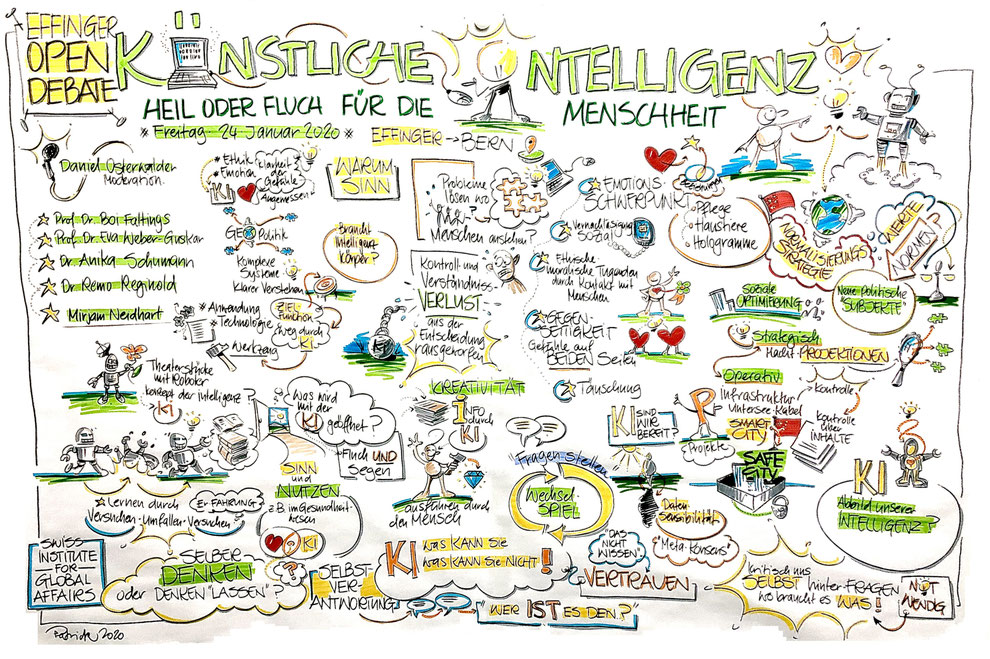 EFFINGER
OPEN
DEBATE
KÜNSTLICHE INTELLIGENZ
HEIL ODER FLUCH FÜR DIE MENSCHHEIT
* Freitag 24 Januar 2020 *
EFFINGER → BERN
Daniel Osterwalder
Moderation
Prof. Dr. Boi Faltings
Prof. Dr. Eva Weber-Guskar
Dr. Anika Schumann
Dr Remo Reginold
Mirjam Neidhart
* Ethik
* Emotion
Klarheit
der
Gefühle
Angemessen
KI
GEO Politik
Komplexe
Systeme
Klarer Verstehen
* Anwendung
* Technologie
Werkzeug
ZIEL-
Funktion
weg durch
KI
WARUM
SINN
Braucht
Intelligenz
Körper?
Probleme
lösen wo
Menschen anstehen?
Kontroll- und
Verständniss-
VERLUST
aus der
Entscheidung
rausgeworfen
EMOTIONS-
SCHWERPUNKT
Beziehung
Pflege
Haustiere
Hologramme
Vernachlässigung
SOZIAL
Ethische
moralische Tugenden
durch Kontakt mit
Menschen
GEGEN-
SEITIGKEIT
Gefühle auf
BEIDEN Seiten
Täuschung
NORMALISIERUNGS
STRATEGIE
WERTE
NORMEN
Soziale
OPTIMIERUNG
Neue Politische
SUBJEKTE
Strategisch
Macht PROJEKTIONEN
Operativ
Kontrolle
Kontrolle
über
INHALTE
Infrastruktur
Untersee-Kabel
SMART
CITY
Projekte
SAFE
CITY
Theaterstücke
mit Roboter
Konzept der Intelligenz?
KI
Was wird
mit der
KI geöffnet?
Fluch UND
Segen
SINN
und
NUTZEN
z.B im Gesundheits-
wesen
KI
KREATIVITÄT
INFO
durch
KI
ausführen durch
den Mensch
Fragen stellen
Wechsel
SPIEL
KI SIND
WIR
BEREIT?
Daten
Sensibilität
"Meta-Konsens"
"DAS
NICHT
WISSEN"
VERTRAUEN
KI
Abbild unserer
INTELLIGENZ!
Lernen durch
Versuchen-Umfallen-Versuchen
ERFAHRUNG
SWISS
INSTITUTE
FOR
GLOBAL
AFFAIRS
SELBER
DENKEN
oder DENKEN "LASSEN"?
SELBST-
VER-
ANTWORTUNG
KI was KANN SIE
was KANN Sie NICHT!
"WER IST ES DEN?"
Kritisch uns
SELBST hinter FRAGEN
wo braucht es WAS!
NOT
WENDIG
2020